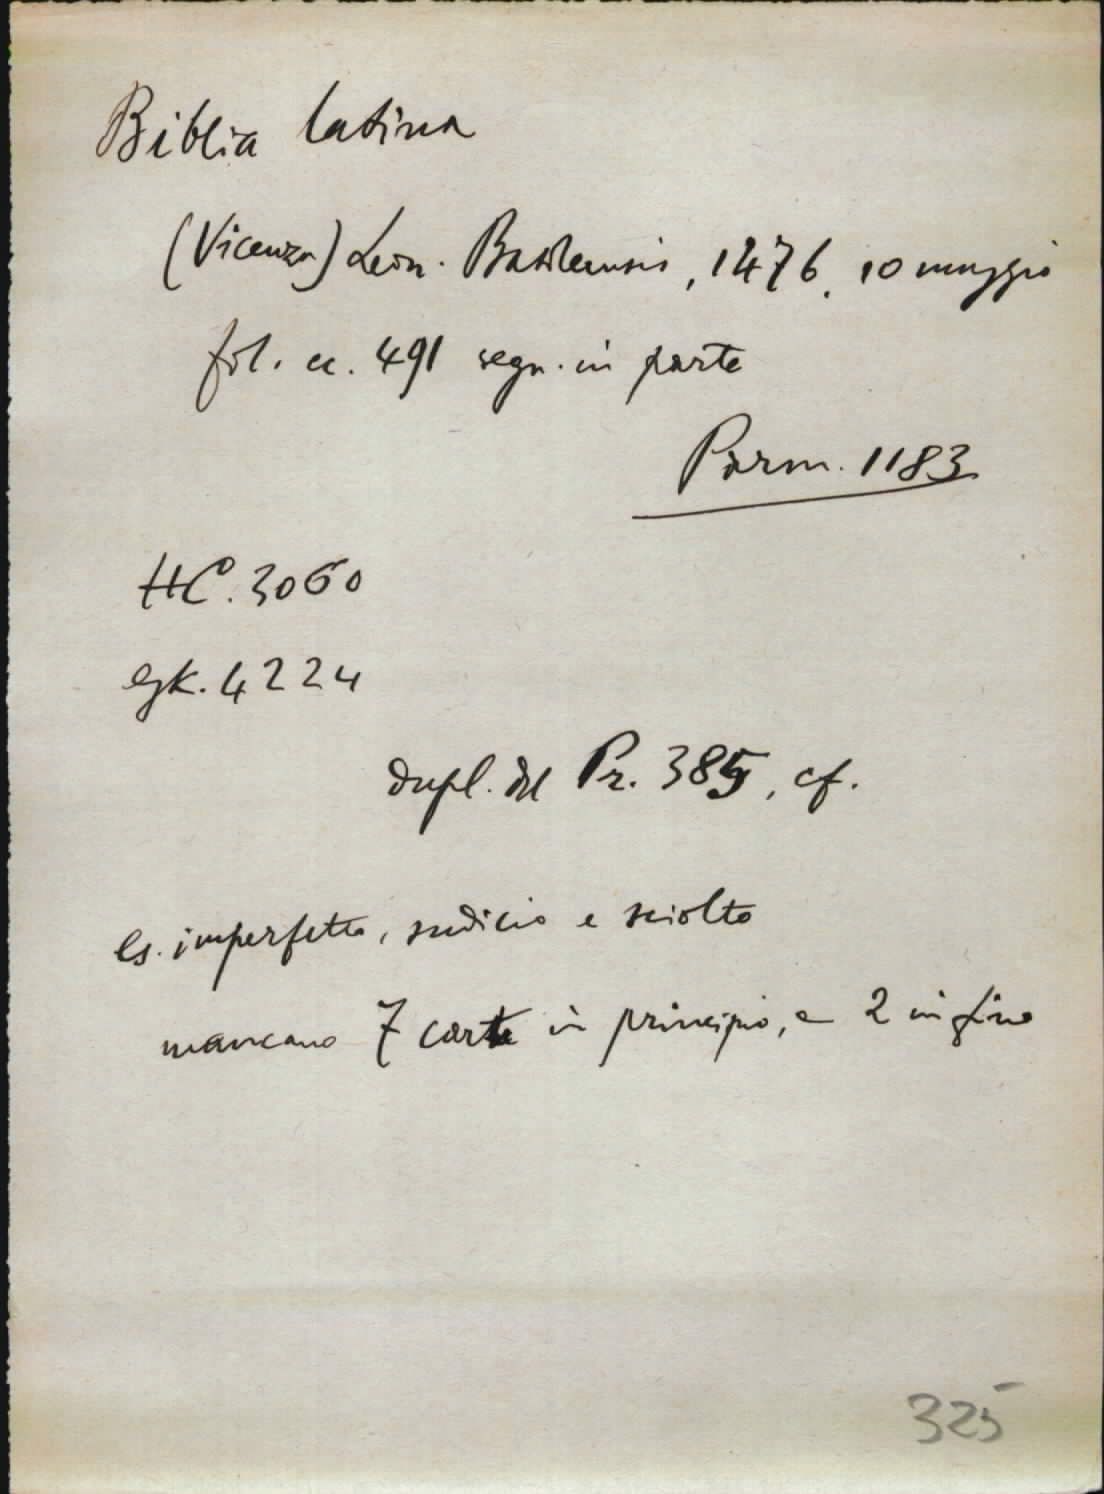 Biblia latina
(Vicenza) Leon. Basileensis, 1476, 10 maggio
fol. cc. 491 segn. in parte
Parm. 1183
HC. 3060
GK. 4224
dupl. del Pr. 385, cf.
Es. imperfetto, sudicio e sciolto
mancano 7 carte in principio, e 2 in fine
325